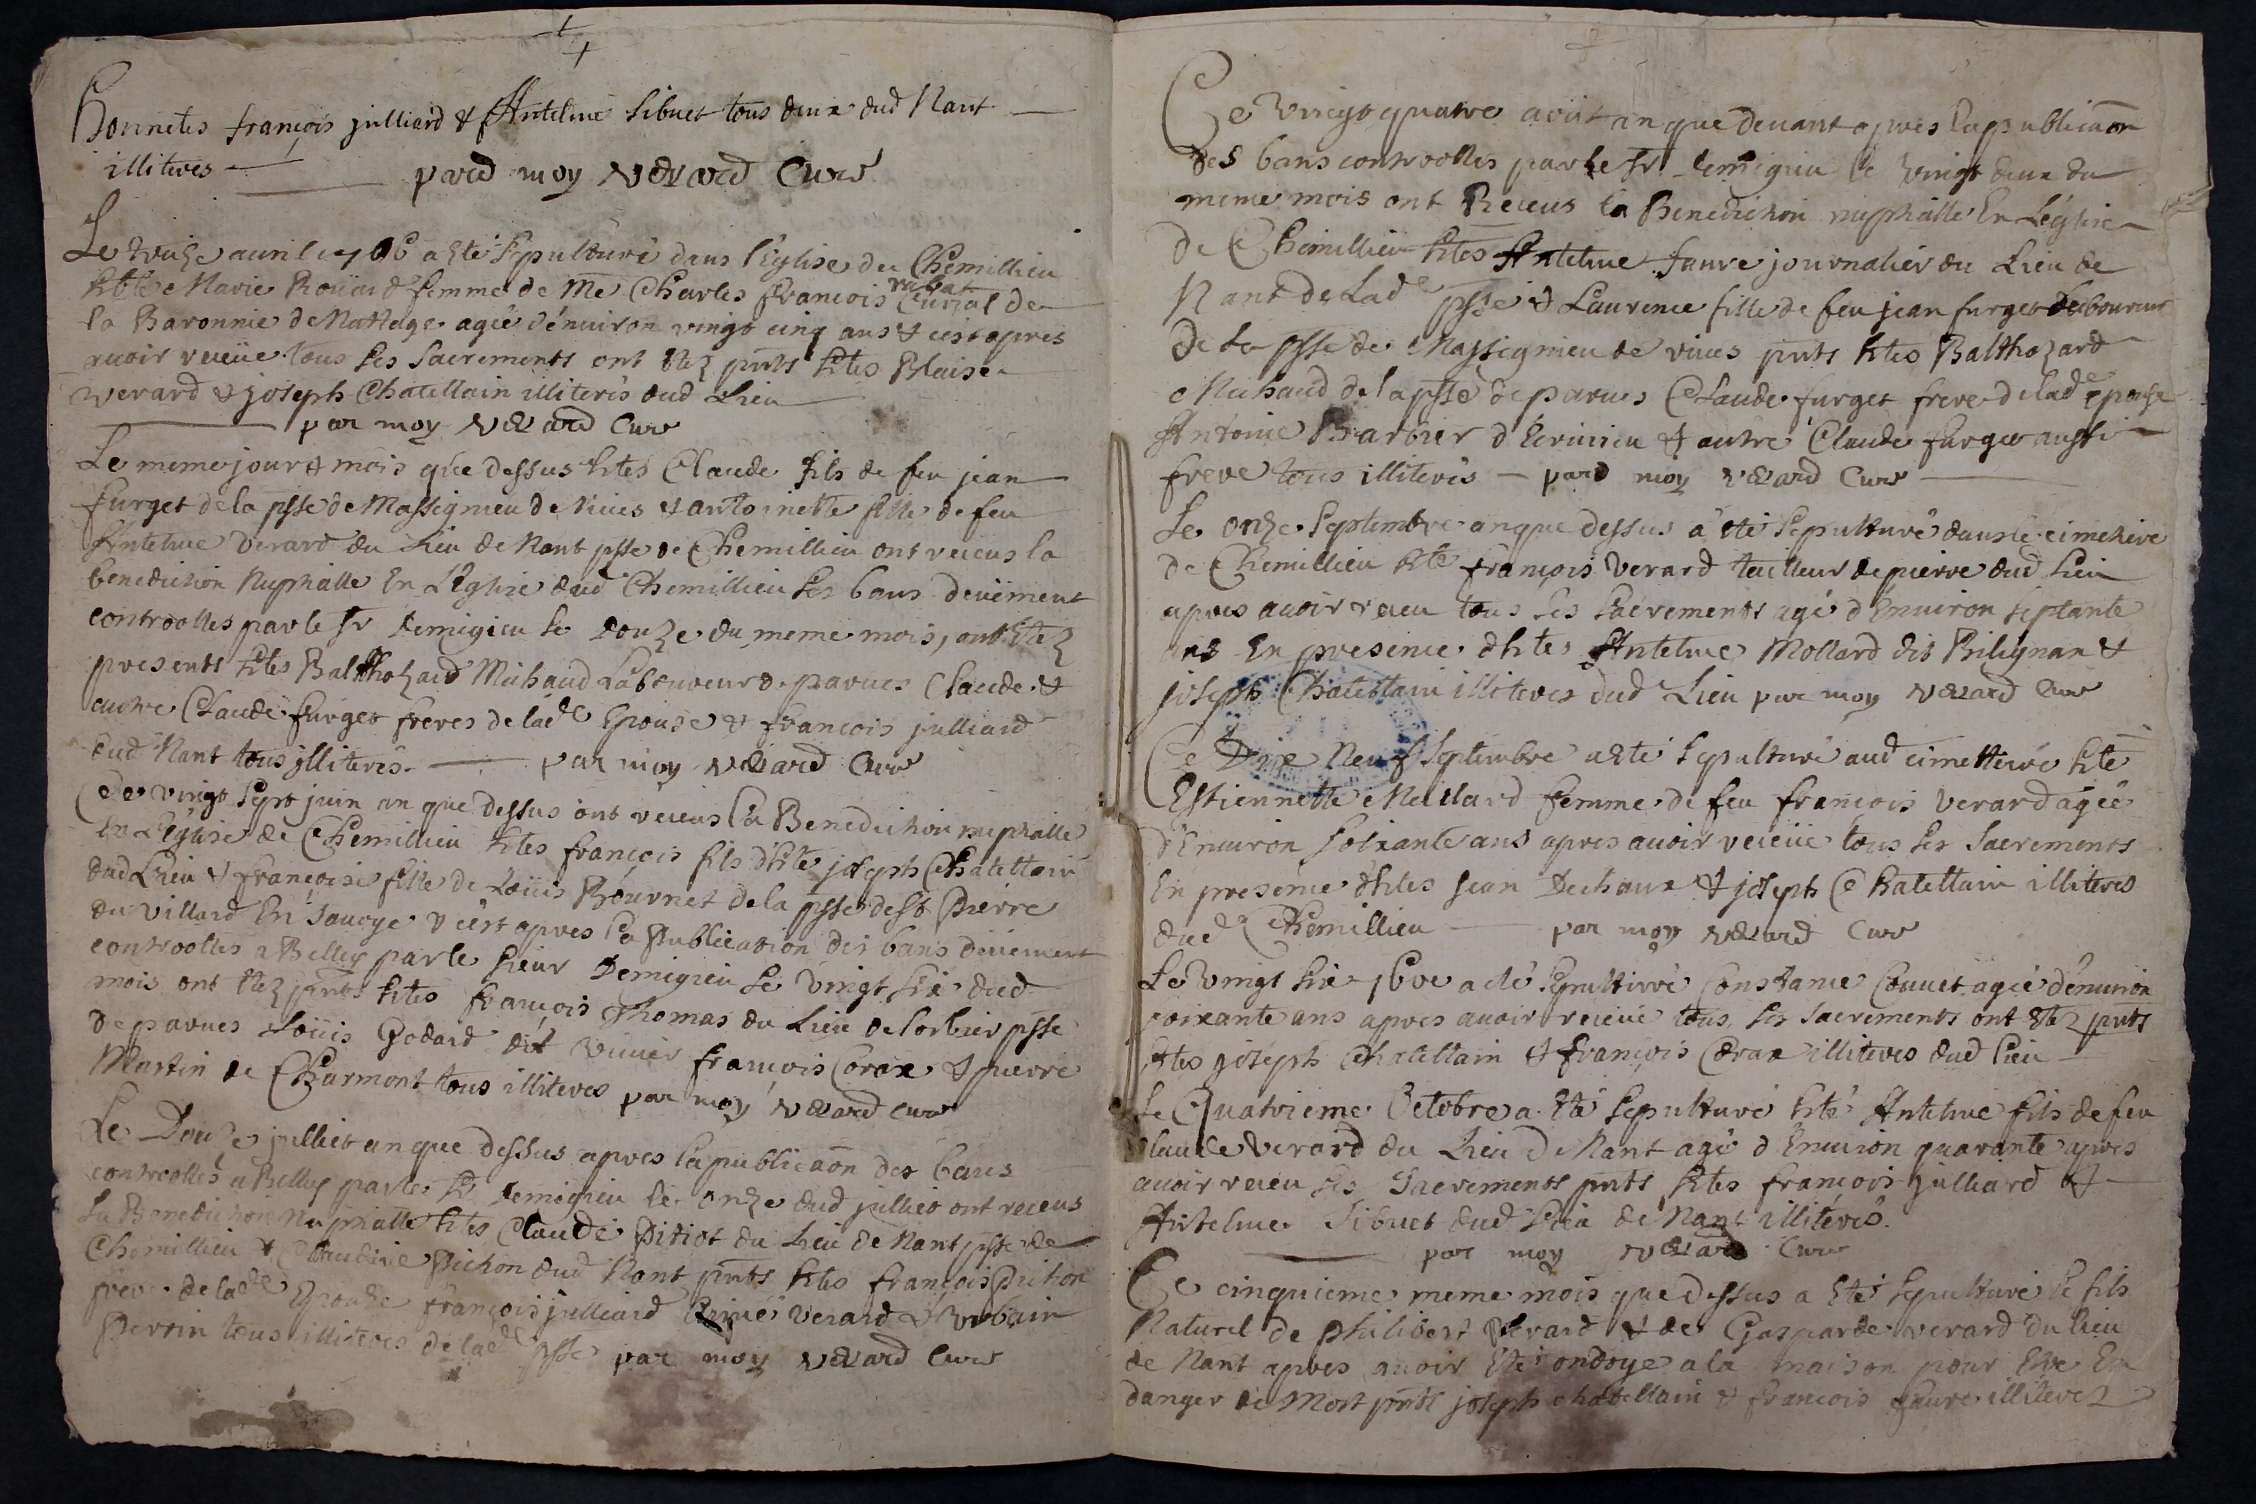 Honnetes françois julliard & Antelme Sibuet tous deux dud Nant
illiteres par moy Verard Curé
Le treize auril 1706 a eté sepulturé dans l'Eglise de Chemillieu
hble Marie Roüard femme de Me Charles françois Curial de
la Baronnie de Nattage agée d'enuiron vingt cinq ans & cest apres
auoir receüe tous ses sacrements ont etez pnts htes Blaise
verard & joseph Chatellain illiterés dud Lieu
par moy Verard Curé
Le meme jour & mois que dessus htes Claude fils de feu jean
furget de la psse de Massignieu de Riues & antoinette fille de feu
Antelme Verard du Lieu de Nant psse de Chemillieu ont receus la
benediction Nuptialle En L'Eglise dud Chemillieu les bans deüement
controolles par le Sr Demigieu le Douze du meme mois, ont Etez
presents htes Balthazard Michaud Laboureur de parues Claude &
autre Claude furget freres de lade Epouse & françois julliard
dud Nant tous illiterés par moy Verard Curé
Ce vingt sept juin an que dessus ont receus la Benediction nuptialle
En L'Eglise de Chemillieu htes françois fils d'hte joseph Chatellain
dud Lieu & françoise fille de Loüis Bournet de la psse de St Pierre
du Villard En Sauoye & c'est apres la Publication des bans deüement
controolles a Belley par le Sieur Demigieu le Vingt six dud
mois ont Etez pnts htes françois Thomas du Lieu de Sorbier psse
de parues Loüis Godard dit Viuier françois Corax & pierre
Martin de Charmont tous illiteres par moy Verard Curé
Le Douze julliet an que dessus apres la publicaon des bans
controolles a Belley par le Sr Demigieu le onze dud julliet ont receus
La Benediction Nuptialle htes Claude Pitiot du Lieu de Nant psse de
Chemillieu & Claudine Pichon dud Nant pnts htes françois Pichon
frere de lade Epouse françois julliard Verard & Vrbain
Perrin tous illiteres de lade psse par moy Verard Curé
Ce Vingt quatre aoüt an que deuant apres la publicaon
des bans controolles par le Sr Demigieu le vingt deux du
meme mois ont Receus la Benediction nuptialle En L'église
de Chemillieu htes Antelme faure journalier du Lieu de
Nant de Lade psse & Laurence fille de feu jean furget Laboureur
de la psse de Massignieu de riues pnts htes Balthazard
Michaud de la psse de parues Claude furget frere de lade epouse
Antoine Barbier d'Ecriuieu & autre Claude furget aussi
frere tous illiterés par moy Verard Curé
Le onze Septembre an que dessus a eté sepulturé dans le cimetiere
de Chemillieu hte françois Verard tailleur de pierre dud Lieu
apres auoir receu tous les sacrements agé d'Enuiron septante
ans En presence d'htes Antelme Mollard dit Bilignan &
joseph Chatellain illiteres dud Lieu par moy Verard Curé
Ce Dix Neuf Septembre a eté sepulturé aud cimettiere hte
Estiennette Mollard femme de feu françois Verard agée
d'Enuiron soixante ans apres auoir receüe tous les sacrements
En presence d'htes jean Dechaux & joseph Chatellain illiteres
dud Chemillieu par moy Verard Curé
Le Vingt six 7bre a eté sepulturée Constance Couuet agée d'enuiron
soixante ans apres auoir receüe tous les sacrements ont etez pnts
htes joseph Chatellain & françois Corax illiteres dud lieu
Le Quatrieme Octobre a Eté sepulturé hte Antelme fils de feu
Claude Verard du Lieu de Nant agé d'Enuiron quarante apres
auoir receu les Sacrements pnts htes françois julliard &
Antelme Sibuet dud Lieu de Nant illiterés
par moy Verard Curé
Ce cinquieme meme mois que dessus a Eté sepulturé le fils
Naturel de Philibert Verard & de Gasparde verard du lieu
de Nant apres auoir Eté ondoye a la maison pour Etre En
danger de Mort pnts joseph chatellain & françois faure illiterez